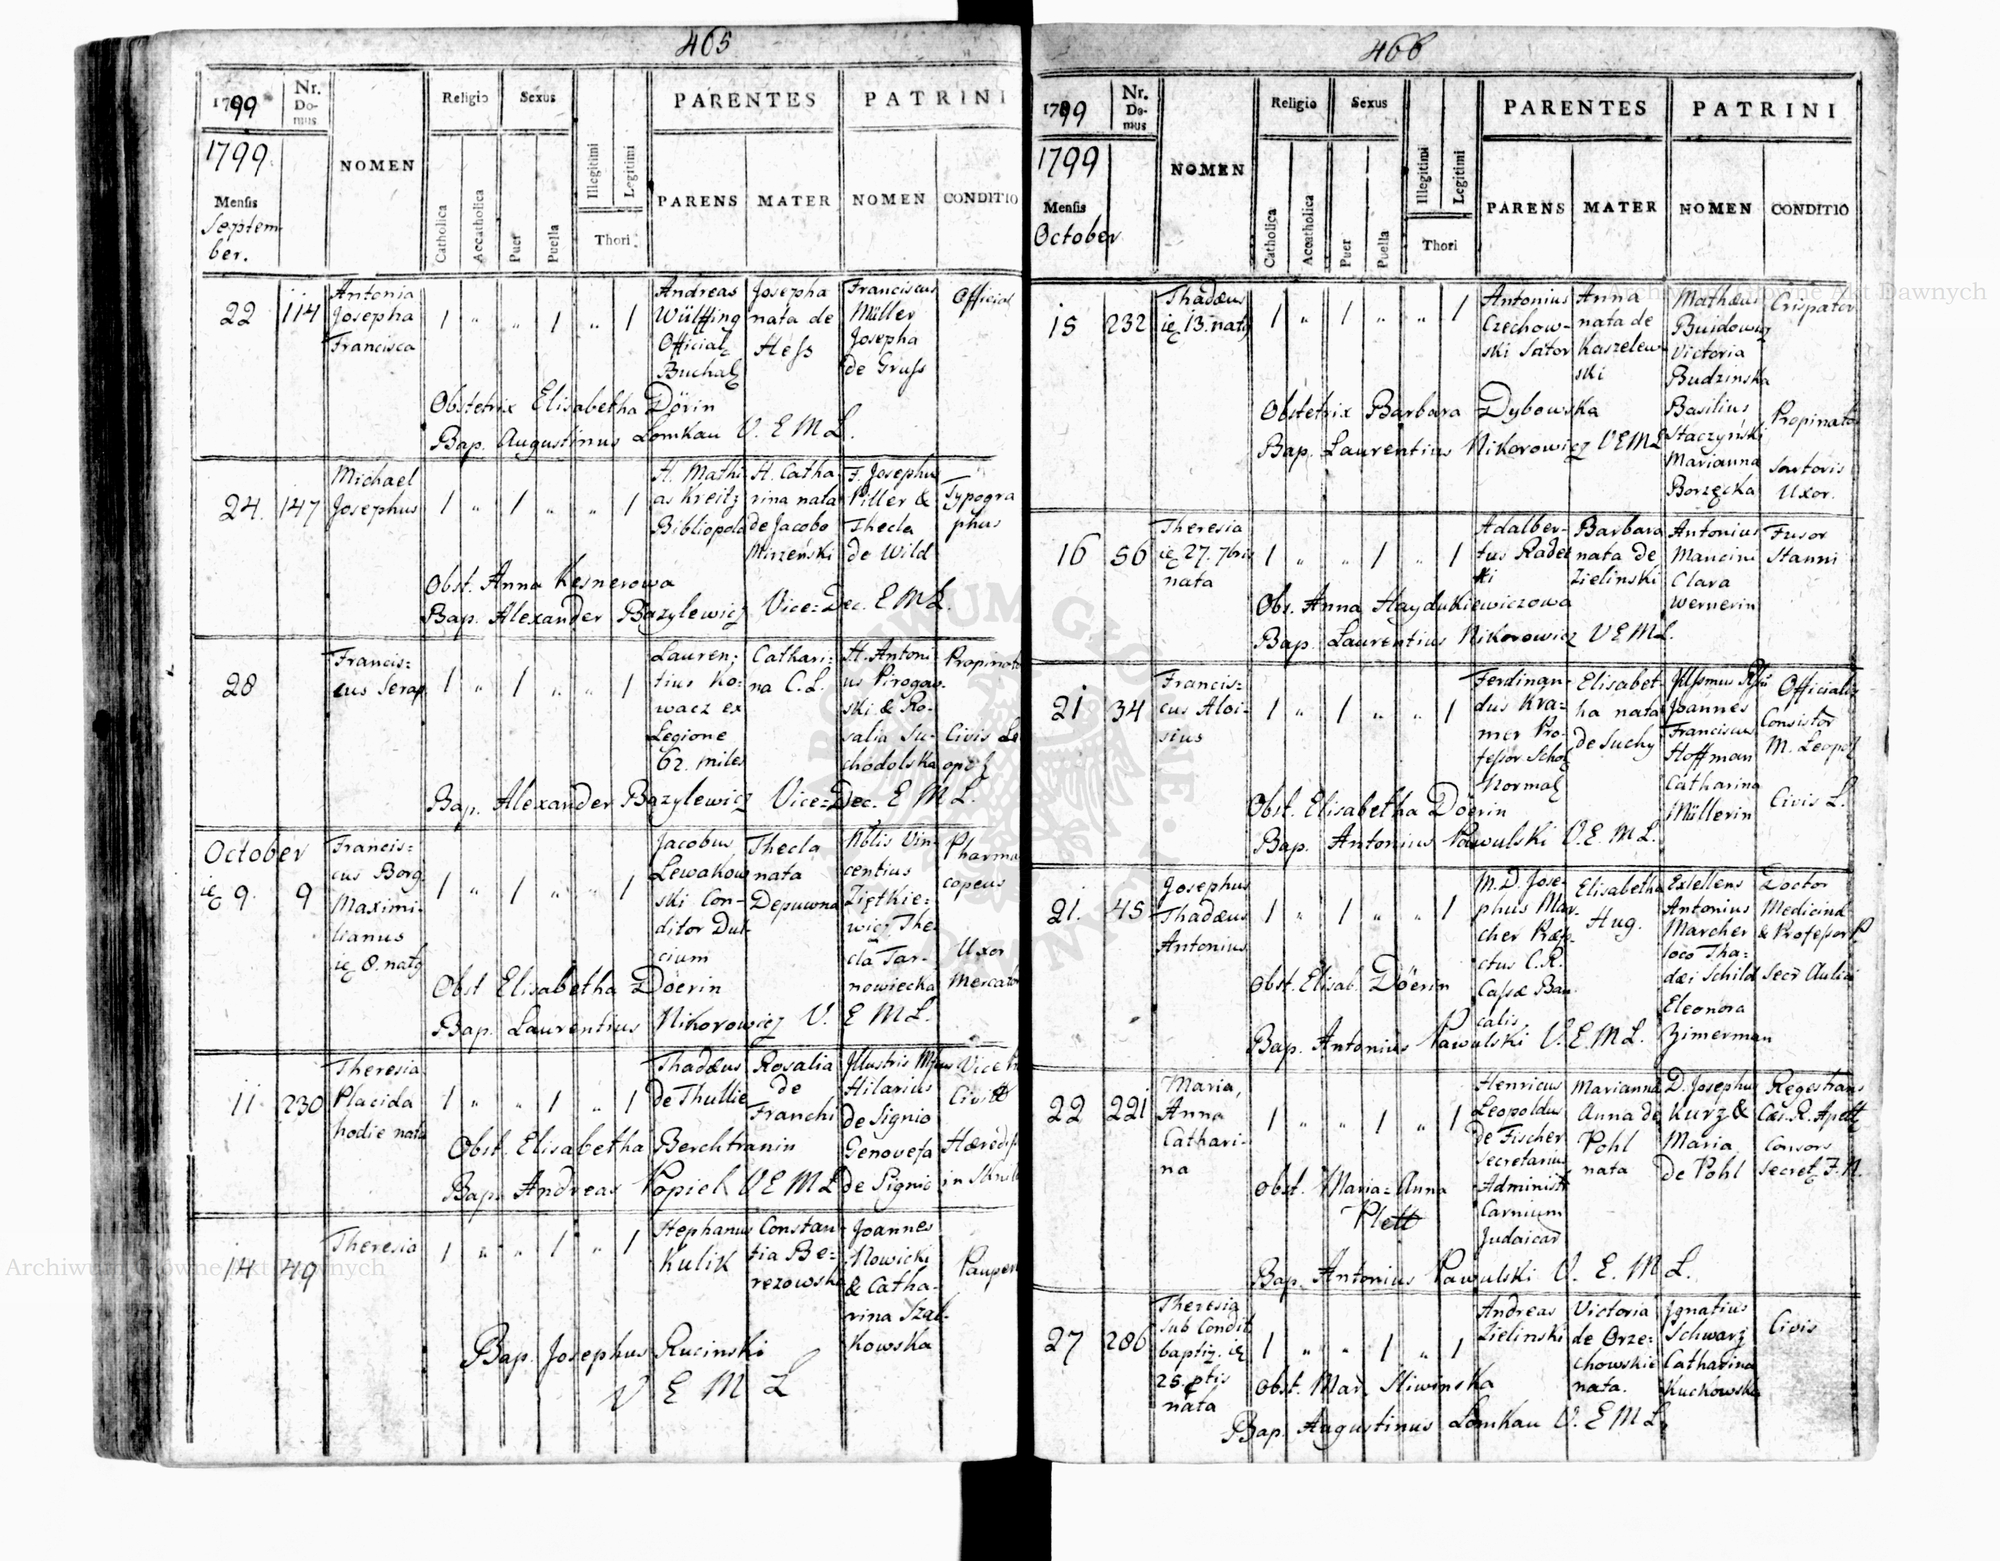 465
1799 Nr. Domus NOMEN Religio Sexus Illegitimi Legitimi PARENTES PATRINI
1799
Mensis Catholica Accatholica Puer Puella Thori PARENS MATER NOMEN CONDITIO
September.
22 114
Antonia
Josepha
Francisca
1 " " 1 " 1
Andreas
Wülffing
Official
Buchal
Josepha
nata de
Hess
Franciscus
Müller
Josepha
de Gruss
Official
Obstetrix Elisabetha Dörin
Bap. Augustinus Lomkau V. E M L.
24. 147
Michael
Josephus
1 " 1 " " 1
H. Mathi-
as Kreitz
Bibliopola
H. Catha
rina nata
de Jacobo
Mirzeński
F. Josephus
Piller &
Thecla
de Wild
Typogra
phus
Obst. Anna Kesnerowa
Bap. Alexander Bazylewicz Vice=Dec. E M L.
28
Francis=
cus Serap.
1 " 1 " " 1
Lauren;
tius Ko:
wacz ex
Legione
62. miles
Cathari:
na C. L.
H. Antoni
us Pirogow.
ski & Ro-
salia Su-
chodolska
Propinato
Civis Le
opol
Bap. Alexander Bazylewicz Vice=Dec. E M L.
October
9. 9
Francis=
cus Borg.
Maximi-
lianus
8. nat
1 " 1 " " 1
Jacobus
Lewakow
ski Con-
ditor Dul-
cium
Thecla
nata
Depuwna
Nblis Vin-
centius
Ziętkie=
wicz The
cla Tar-
nowiecka
Pharma
copeus
Uxor
Mercato
Obst Elisabetha Döerin
Bap. Laurentius Nikorowicz V. E M L.
11 230
Theresia
Placida
hodie nata
1 " " 1 " 1
Thadæus
de Thullie
Rosalia
de
Franchi
Illustris Mfcus
Hilarius
de Signio
Genovefa
de Signio
Vice
Civit
Hæredis
in
Obst. Elisabetha Berchtranin
Bap. Andreas Popiel V E M L
14 49
Theresia
1 " " 1 " 1
Stephanus
Kulik
Constan-
tia Be=
rezowska
Joannes
Nowicki
& Catha-
rina Szal-
kowska
Pauper
Bap. Josephus Rucinski
V E M L
466
1799 Nr. Domus NOMEN Religio Sexus Illegitimi Legitimi PARENTES PATRINI
1799
Mensis Catholica Accatholica Puer Puella Thori PARENS MATER NOMEN CONDITIO
October
15 232
Thadæus
13. nat
1 " 1 " " 1
Antonius
Czechow-
ski Sator
Anna
nata de
Kaszelew-
ski
Mathæus
Buidowicz
Victoria
Budzinska
Basilius
Staczyński
Marianna
Borzęcka
Crispator
Propinato
Sartoris
Uxor.
Obstetrix Barbara Dybowska
Bap. Laurentius Nikorowicz V E M L
16 56
Theresia
27. 7bris
nata
1 " " 1 " 1
Adalber-
tus Radec
ki
Barbara
nata de
Zielinski
Antonius
Mancini
Clara
Wernerin
Fusor
Stanni
Obs. Anna Haydukiewiczowa
Bap. Laurentius Nikorowicz V E M L.
21 34
Francis=
cus Aloi-
sius
1 " 1 " " 1
Ferdinan-
dus Kra-
mer Pro-
fessor Schol
Normal
Elisabet-
ha nata
de Suchy
Joannes
Franciscus
Hoffman
Catharina
Müllerin
Officialis
Consistor
M. Leopol
Civis L.
Obst. Elisabetha Döerin
Bap. Antonius Pawulski V. E. M L.
21. 45
Josephus
Thadæus
Antonius
1 " 1 " " 1
M. D. Jose-
phus Mar-
cher Præfe-
ctus C. R.
Cassæ Ban-
calis
Elisabetha
Hug.
Exlellens
Antonius
Marcher
loco Tha-
dæi Schild
Eleonora
Zimerman
Doctor
Medicinæ
& Professor P.
Secr Aulicæ
Obst. Elisab. Döerin
Bap. Antonius Pawulski V. E. M L.
22 221
Maria,
Anna
Cathari-
na
1 " " 1 " 1
Henricus
Leopoldus
de Fischer
Secretarius
Administr
Carnium
Judaicar
Marianna
Anna de
Pohl
nata
D. Josephus
Kurz &
Maria
de Pohl
Regestrans
Cæs. R. Apell
Consors
Secret F. N.
Obst. Maria=Anna
Plett
Bap. Antonius Pawulski V. E. M L.
27 286
Theresia
sub Condit
baptiz.
25.
nata
1 " " 1 " 1
Andreas
Zielinski
Victoria
de Orze=
chowskie
nata.
Ignatius
Schwarz
Catharina
Kuchowska
Civis
Obst. Mar. Sliwinska
Bap. Augustinus Lomkau V. E M L.
Archiwum Główne Akt Dawnych
Archiwum Główne Akt Dawnych
ARCHIWUM GŁÓWNE AKT DAWNYCH